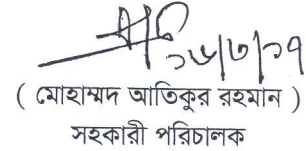 ১৬/৩/১৭
( মোহাম্মদ আতিকুর রহমান )
সহকারী পরিচালক